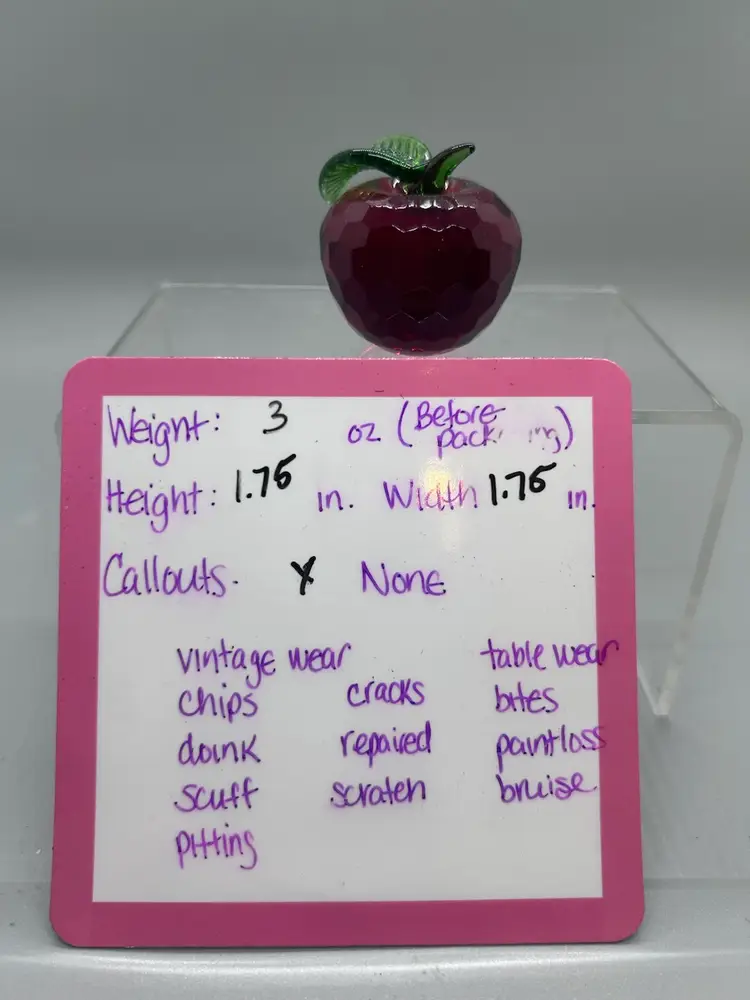 Weight: 3 oz (Before packing)
Height: 1.75 in. Width 1.75 in.
Callouts. X None
vintage wear table wear
chips cracks bites
doink repaired paintloss
scuff scratch bruise
pitting